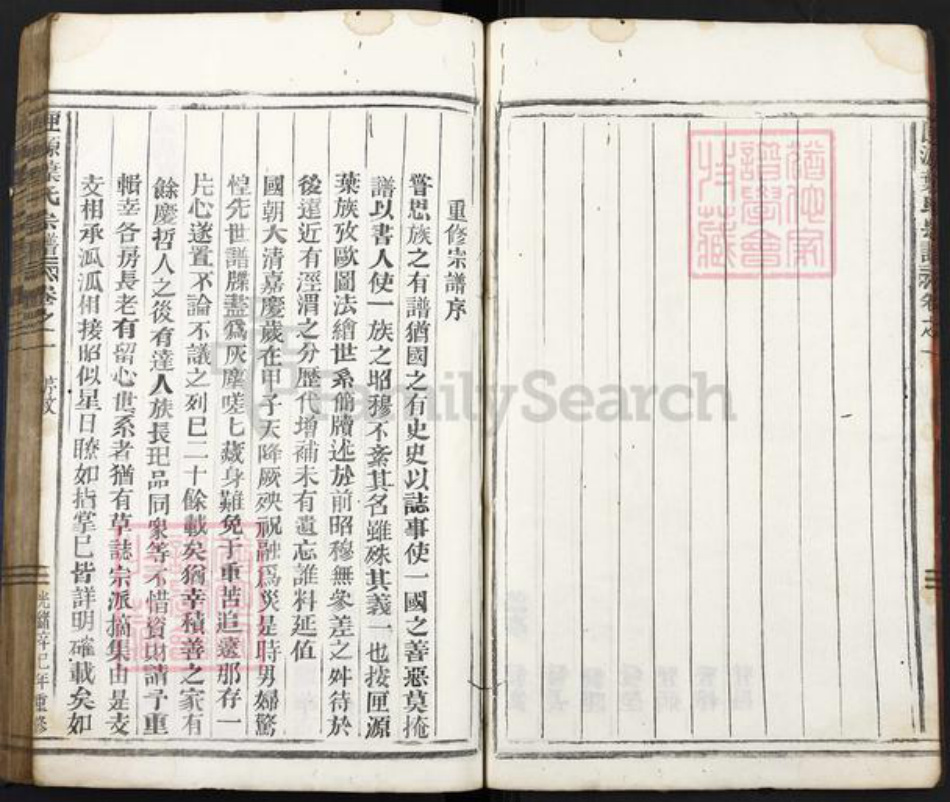 重修宗譜序
嘗思族之有譜猶國之有史史以誌事使一國之善惡莫掩
譜以書人使一族之昭穆不紊其名雖殊其義一也按匣源
葉族攷歐圖法繪世系簡牘述於前昭穆無參差之舛待於
後遠近有涇渭之分歷代增補未有遺忘誰料延值
國朝大清嘉慶歲在甲子天降厥殃祝融為災是時男婦驚
惶先世譜牒盡為灰塵嗟七藏身難免于重苦追遠那存一
片心遂置不論不議之列已二十餘載矣猶幸積善之家有
餘慶哲人之後有達人族長玘品同眾等不惜資財請予重
輯幸各房長老有留心世系者猶有草誌宗派摘集由是支
支相承瓜瓜相接昭似星日瞭如指掌已皆詳明確載矣如
匣源葉氏宗譜
卷之一
序文
光緒辛巳年重修
譜學會
特藏
FamilySearch